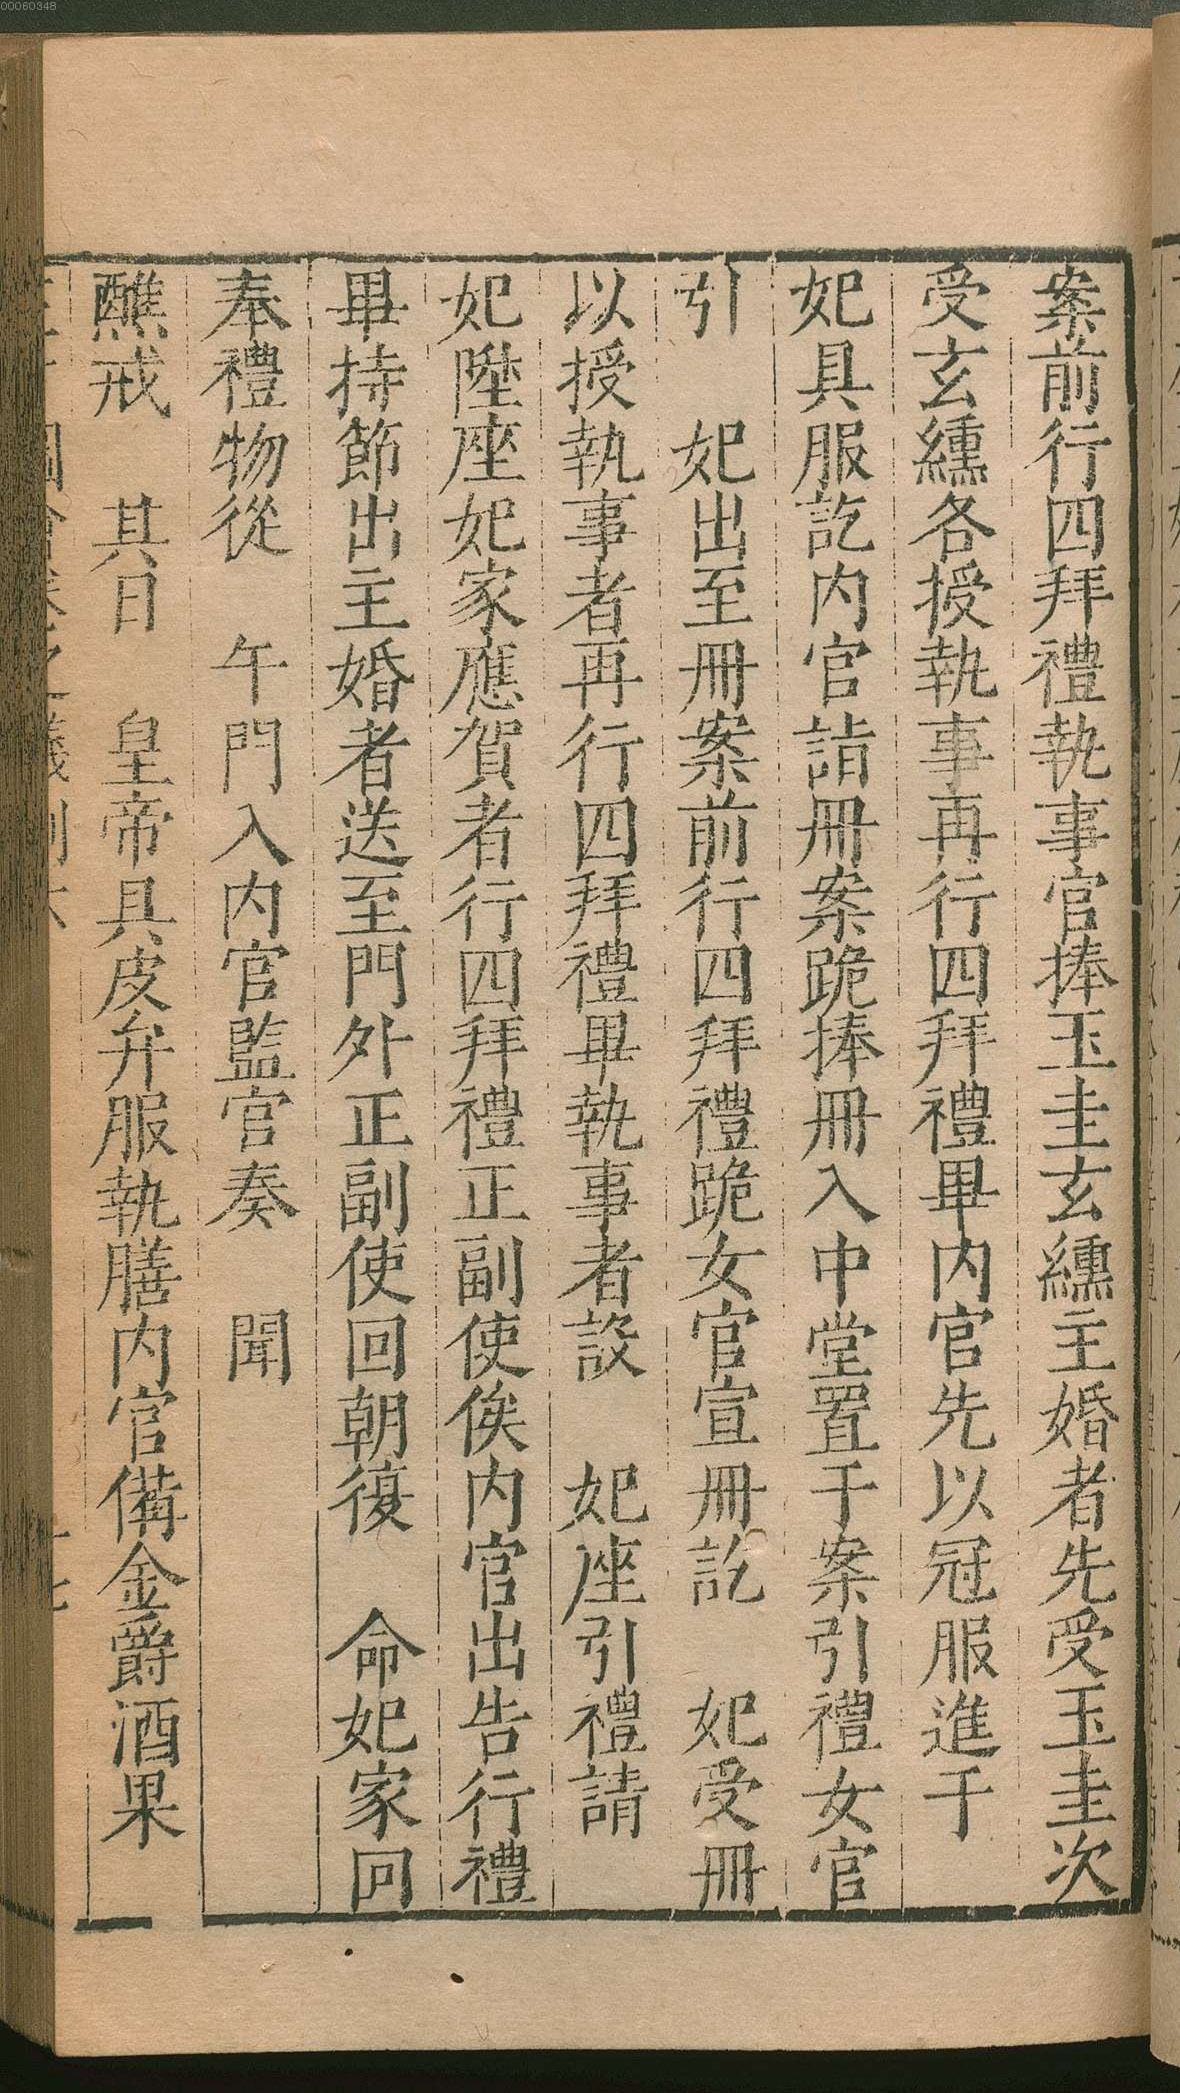 00060348
案前行四拜禮執事官捧玉圭玄纁主婚者先受玉圭次
受玄纁各授執事再行四拜禮畢内官先以冠服進于
妃具服訖内官詣冊案跪捧冊入中堂置于案引禮女官
引　妃出至冊案前行四拜禮跪女官宣冊訖　妃受冊
以授執事者再行四拜禮畢執事者設　妃座引禮請
妃陞座妃家應賀者行四拜禮正副使俟内官出告行禮
畢持節出主婚者送至門外正副使回朝復　命妃家回
奉禮物從　午門入内官監官奏　聞
醮戒　其日　皇帝具皮弁服執膳内官備金爵酒果